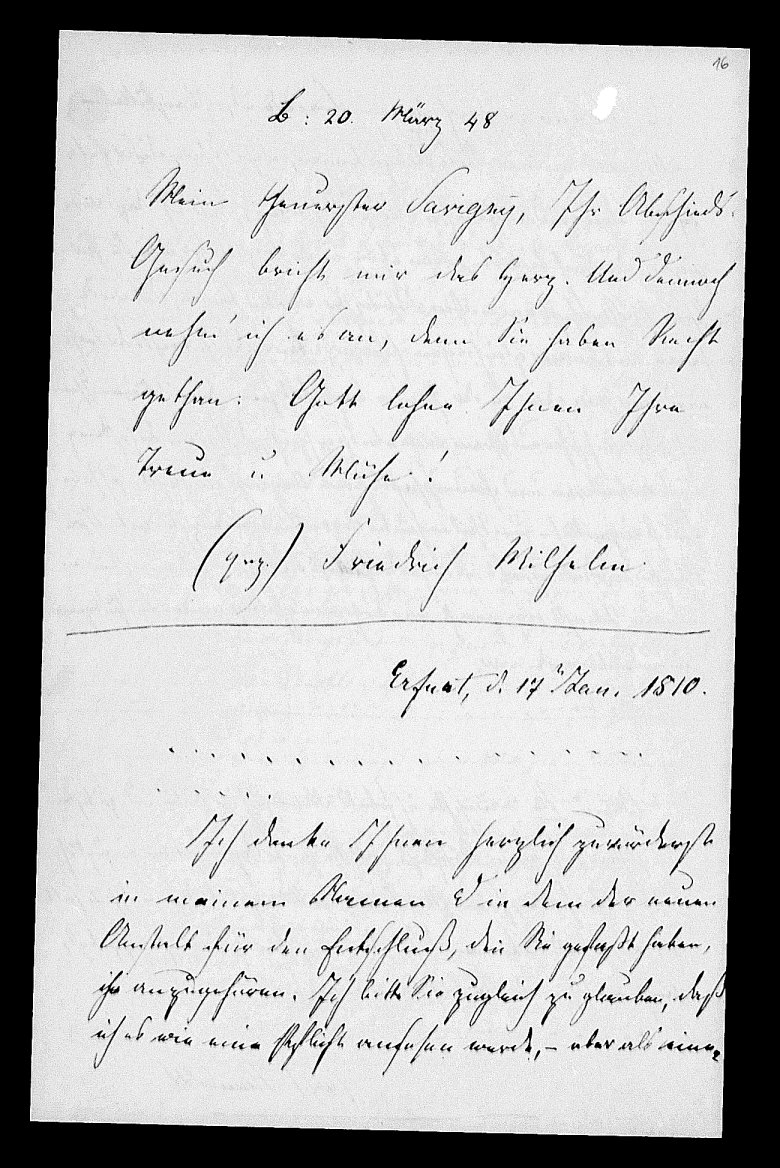 16
B: 20. März 48
Mein theuerster Savigny, Ihr Abschieds-
Gesuch bricht mir das Herz. Und dennoch
nehm' ich es an, denn Sie haben Recht
gethan. Gott lohne Ihnen Ihre
Treue u Mühe!
(gez.) Friedrich Wilhelm.
Erfurt, d. 17 Jan. 1810.
. . . . . . . . . . . . . .
. . . . .
Ich danke Ihnen herzlich zuvörderst
in meinem Namen & in dem der neuen
Anstalt für den Entschluß, den Sie gefaßt haben,
ihr anzugehören. Ich bitte Sie zugleich zu glauben, daß
ich es wie eine Pflicht ansehen werde, – aber als eine